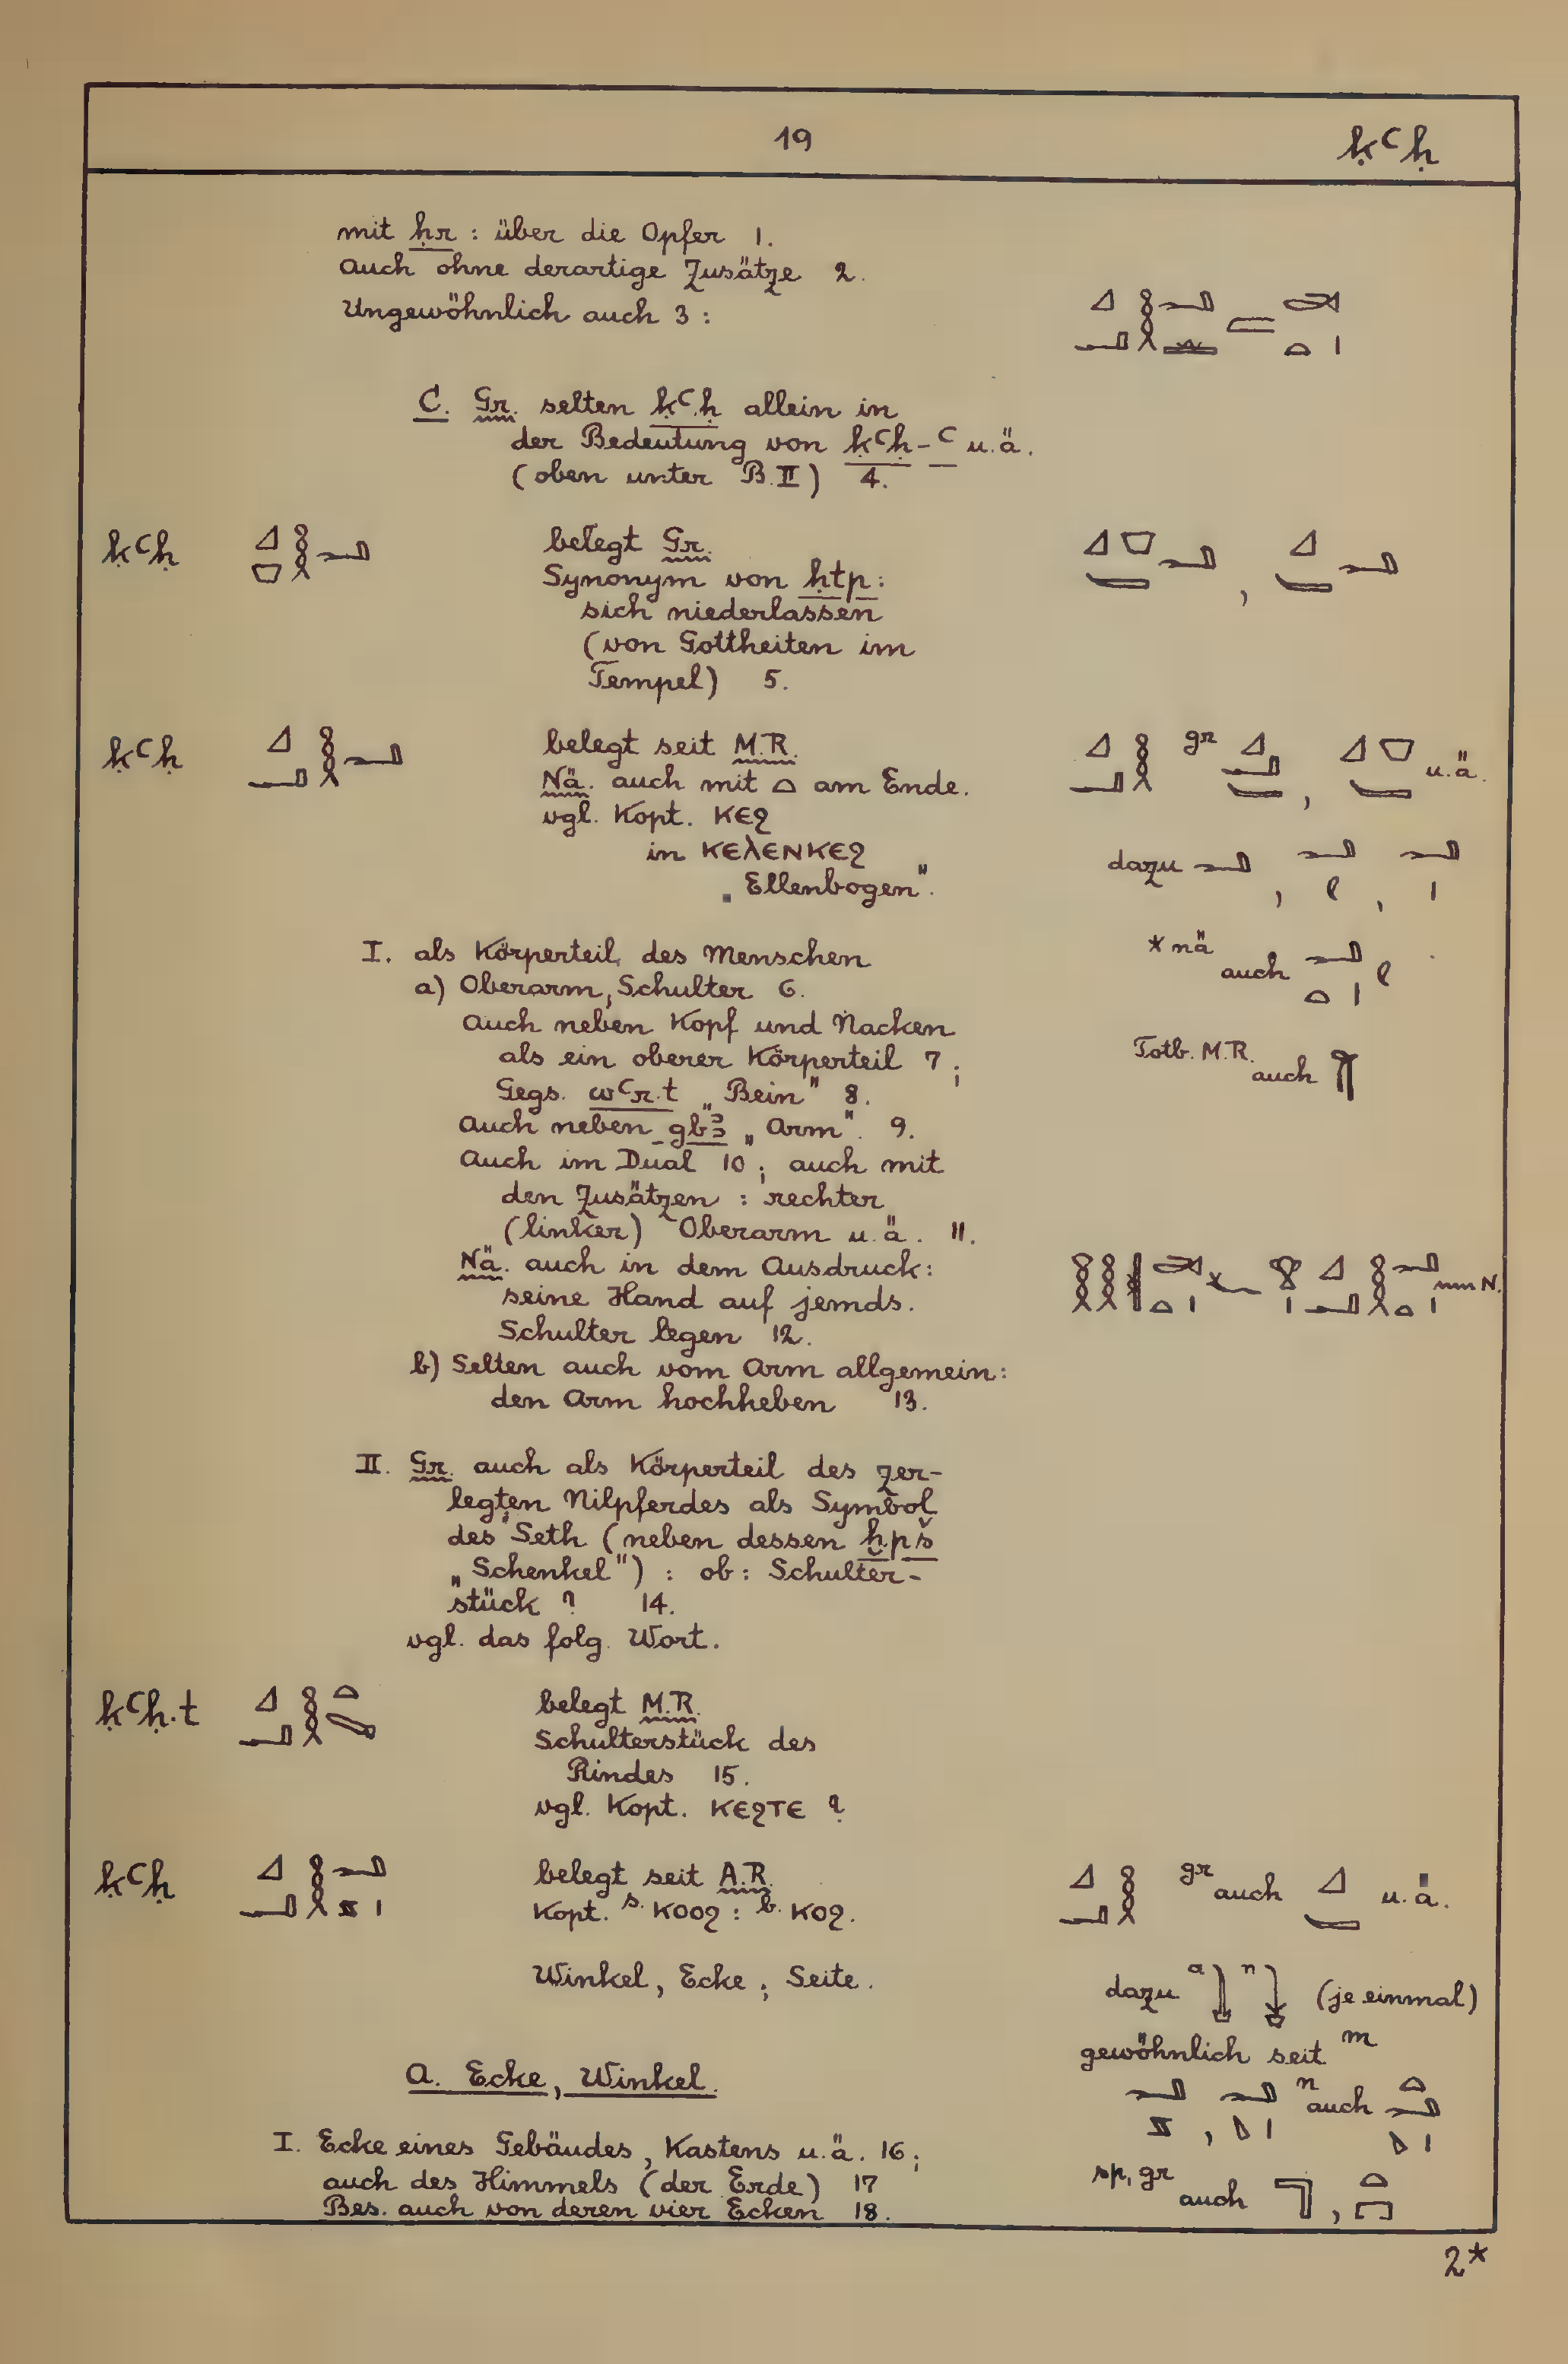 19
ḳꜥḥ
mit ḥr : über die Opfer 1.
Auch ohne derartige Zusätze 2.
Ungewöhnlich auch 3 :
C. Gr. selten ḳꜥḥ allein in
der Bedeutung von ḳꜥḥ-ꜥ u.ä.
(oben unter B.II) 4.
ḳꜥḥ
belegt Gr.
Synonym von ḥtp :
sich niederlassen
(von Gottheiten im
Tempel) 5.
ḳꜥḥ
belegt seit M.R.
gr
u.ä.
Nä. auch mit 𓏏 am Ende.
vgl. Kopt. ⲕⲉϩ
in ⲕⲉⲗⲉⲛⲕⲉϩ
„Ellenbogen".
dazu
I. als Körperteil des Menschen
a) Oberarm, Schulter 6.
Auch neben Kopf und Nacken
als ein oberer Körperteil 7 ;
Gegs. wꜥr.t „Bein" 8.
Auch neben gbꜣ „Arm". 9.
Auch im Dual 10 ; auch mit
den Zusätzen : rechter
(linker) Oberarm u.ä. 11.
Nä. auch in dem Ausdruck:
seine Hand auf jemds.
Schulter legen 12.
b) Selten auch vom Arm allgemein:
den Arm hochheben 13.
* nä auch
Totb. M.R. auch
N.
II. Gr. auch als Körperteil des zer-
legten Nilpferdes als Symbol
des Seth (neben dessen ḫpš
„Schenkel") : ob : Schulter-
stück ? 14.
vgl. das folg. Wort.
ḳꜥḥ.t
belegt M.R.
Schulterstück des
Rindes 15.
vgl. Kopt. ⲕⲉϩⲧⲉ ?
ḳꜥḥ
belegt seit A.R.
Kopt. s. ⲕⲟⲟϩ : b. ⲕⲟϩ.
Winkel, Ecke ; Seite.
gr auch
u.ä.
dazu a n (je einmal)
gewöhnlich seit m
n auch
sp, gr auch
A. Ecke, Winkel.
I. Ecke eines Gebäudes, Kastens u.ä. 16 ;
auch des Himmels (der Erde) 17
Bes. auch von deren vier Ecken 18.
2*